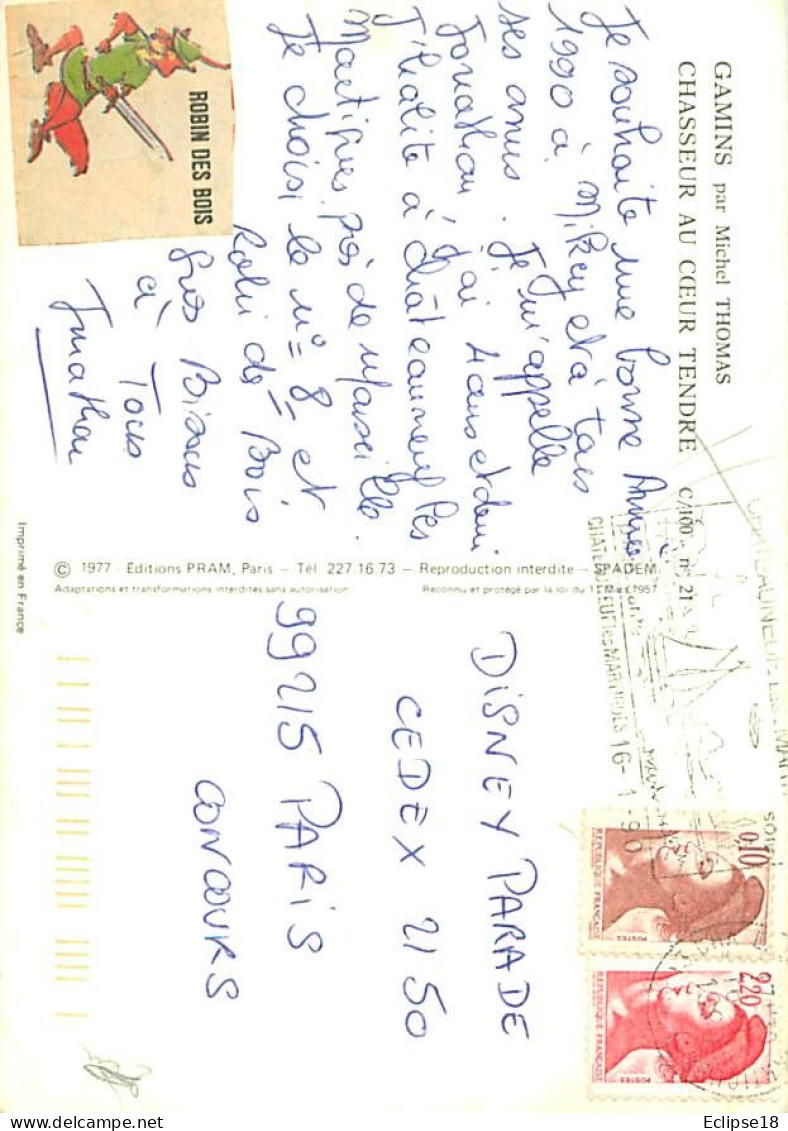 GAMINS par Michel THOMAS
CHASSEUR AU CŒUR TENDRE C/100 n° 21
Je souhaite une bonne Année
1990 à Mickey et à tous
ses amis. Je m'appelle
Jonathan, j'ai 4 ans et demi
J'habite à Châteauneuf les
Martigues près de Marseille.
Je choisi le n° 8 et
Robin des Bois
Gros Bisous
à Tous
Jonathan
ROBIN DES BOIS
© 1977 - Éditions PRAM, Paris — Tél. 227.16.73 — Reproduction interdite — SPADEM
Adaptations et transformations interdites sans autorisation
Reconnu et protégé par la loi du 11 Mars 1957
Imprimé en France
CHATEAUNEUF les MARTIGUES 16-1-90
0,10
REPUBLIQUE FRANÇAISE
POSTES
2,20
REPUBLIQUE FRANÇAISE
POSTES
DISNEY PARADE
CEDEX 2150
99215 PARIS
CONCOURS
Eclipse18